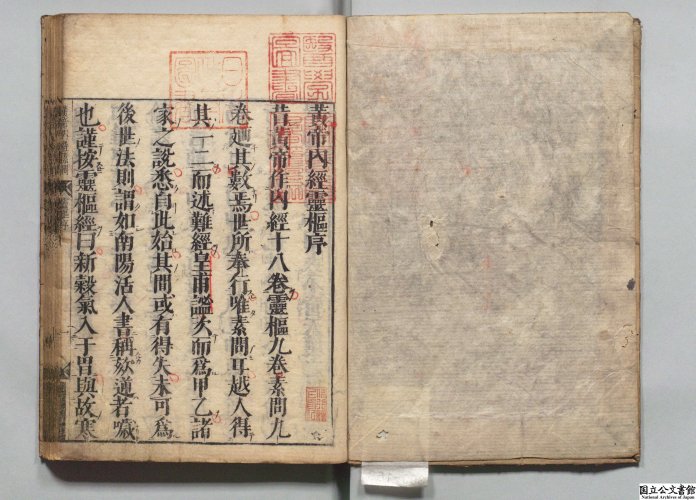 黃帝內經靈樞序
昔黃帝作內經十八卷靈樞九卷素問九
卷廼其數焉世所奉行唯素問耳越人得
其一二而述難經皇甫謐次而爲甲乙諸
家之說悉自此始其間或有得失未可爲
後世法則謂如南陽活人書稱欬逆者噦
也謹按靈樞經曰新穀氣入于胃與故寒
国立公文書館
National Archives of Japan